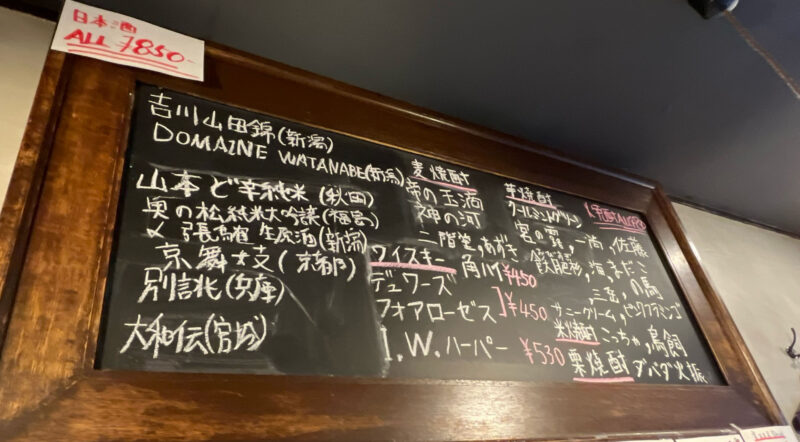 日本酒
ALL ¥850-
吉川山田錦(新潟)
DOMAINE WATANABE(新潟)
山本 ど辛純米 (秋田)
奥の松 純米大吟醸(福島)
〆張鶴 生原酒(新潟)
京舞支(京都)
別誂(兵庫)
大和伝(宮城)
麦焼酎
帝の玉酒
神の河
二階堂,
ウイスキー
角川 ¥450
デュワーズ
フォアローゼス
¥450
I.W.ハーパー ¥530
芋焼酎
クールミントグリーン
宮の露,一尚,佐藤
鉄龍形,海,きろく
三岳,の馬
サニークリーム,ピンクフラミンゴ
米焼酎 こっちゃ,鳥飼
栗焼酎 ダバダ火振